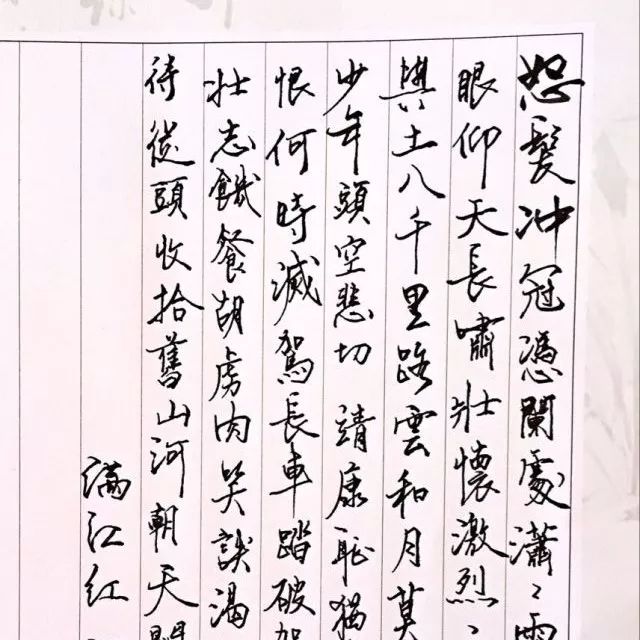 怒髮冲冠憑闌處瀟〻
眼仰天長嘯壯懷激烈
與土八千里路雲和月莫
少年頭空悲切 靖康恥猶
恨何時滅駕長車踏破
壯志饑餐胡虜肉笑談渴
待從頭收拾舊山河朝天
满江红